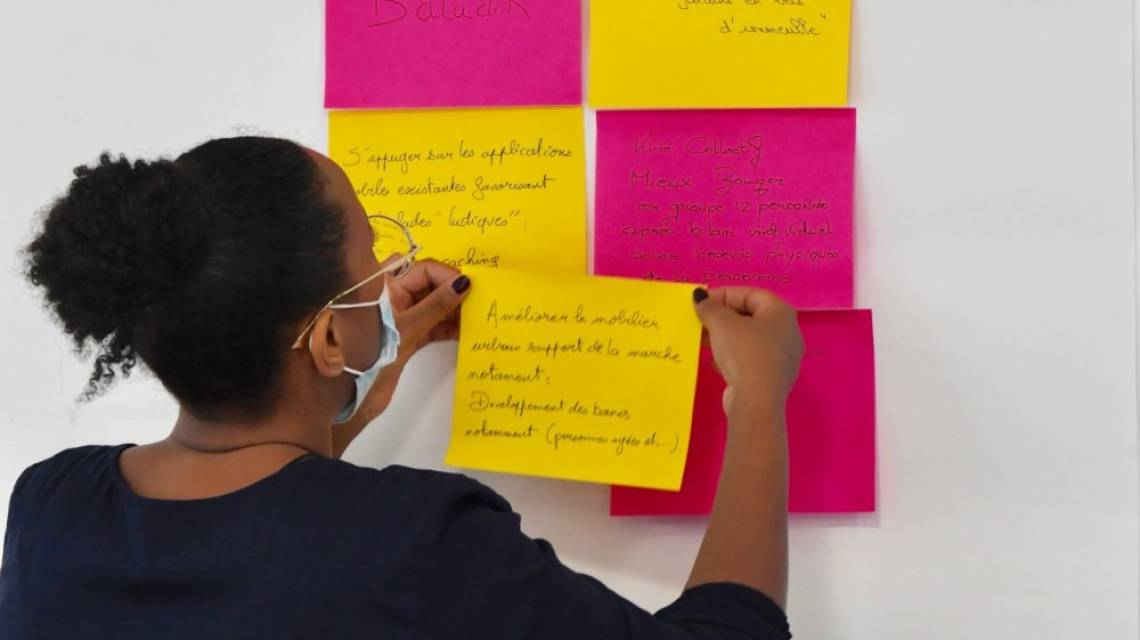 Baludik
jardins en bas
d'immeuble"
S'appuyer sur les applications
mobiles existantes favorisant
"ludiques":
caching
Kiné Collectif
Mieux Bouger
en groupe 12 personnes
après bilan individuel
selon besoins physiques
de la personne
Améliorer le mobilier
urbain support de la marche
notament:
Developpement des bancs
notamment (personnes agées et...)